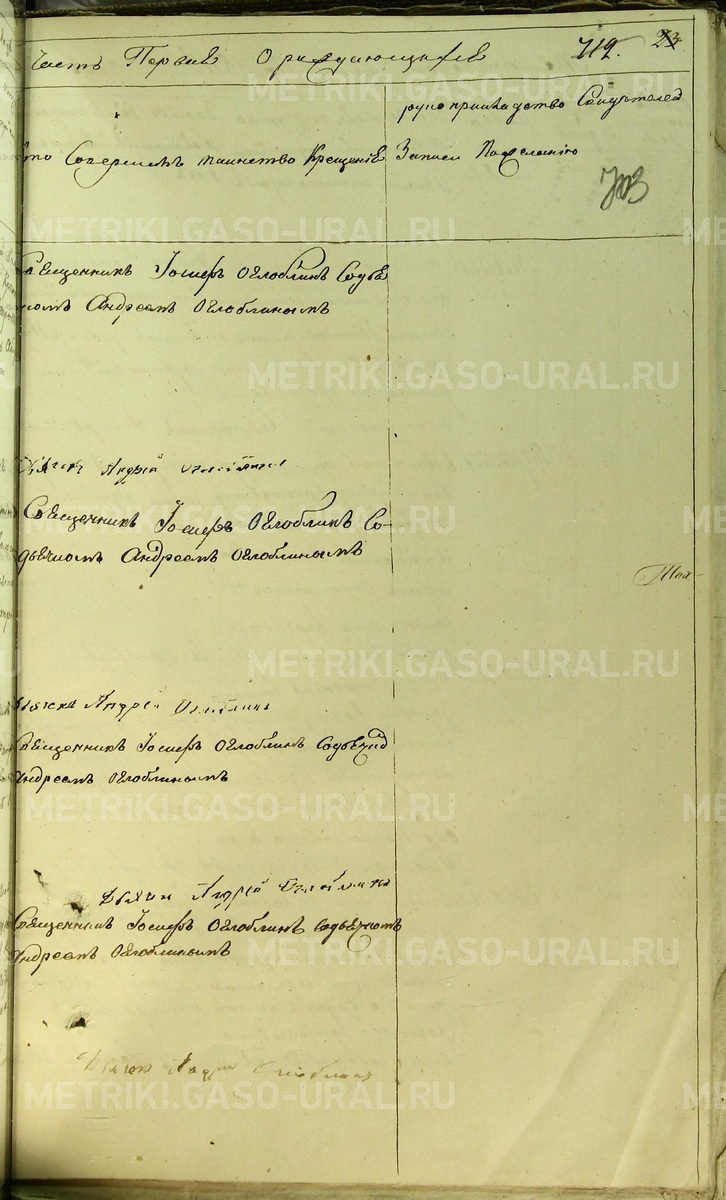 Часть Первая О раждающихся 719. 23
рукоприкладство Свидетелей
Кто Совершалъ таинство Крещенiе Записи по желанiю
703
Священникъ Iосифъ Оглоблинъ Содья
чомъ Андреемъ Оглоблинымъ
Дьячекъ Андрей Оглоблинъ
Священникъ Iосифъ Оглоблинъ Со-
дьячомъ Андреемъ Оглоблинымъ
Дьячекъ Андрей Оглоблинъ
Священникъ Iосифъ Оглоблинъ Содьячкомъ
Андреемъ Оглоблинымъ
Дьячекъ Андрей Оглоблинъ
Священникъ Iосифъ Оглоблинъ Содьячкомъ
Андреемъ Оглоблинымъ
Дьячекъ Андрей Оглоблинъ
METRIKI.GASO-URAL.RU